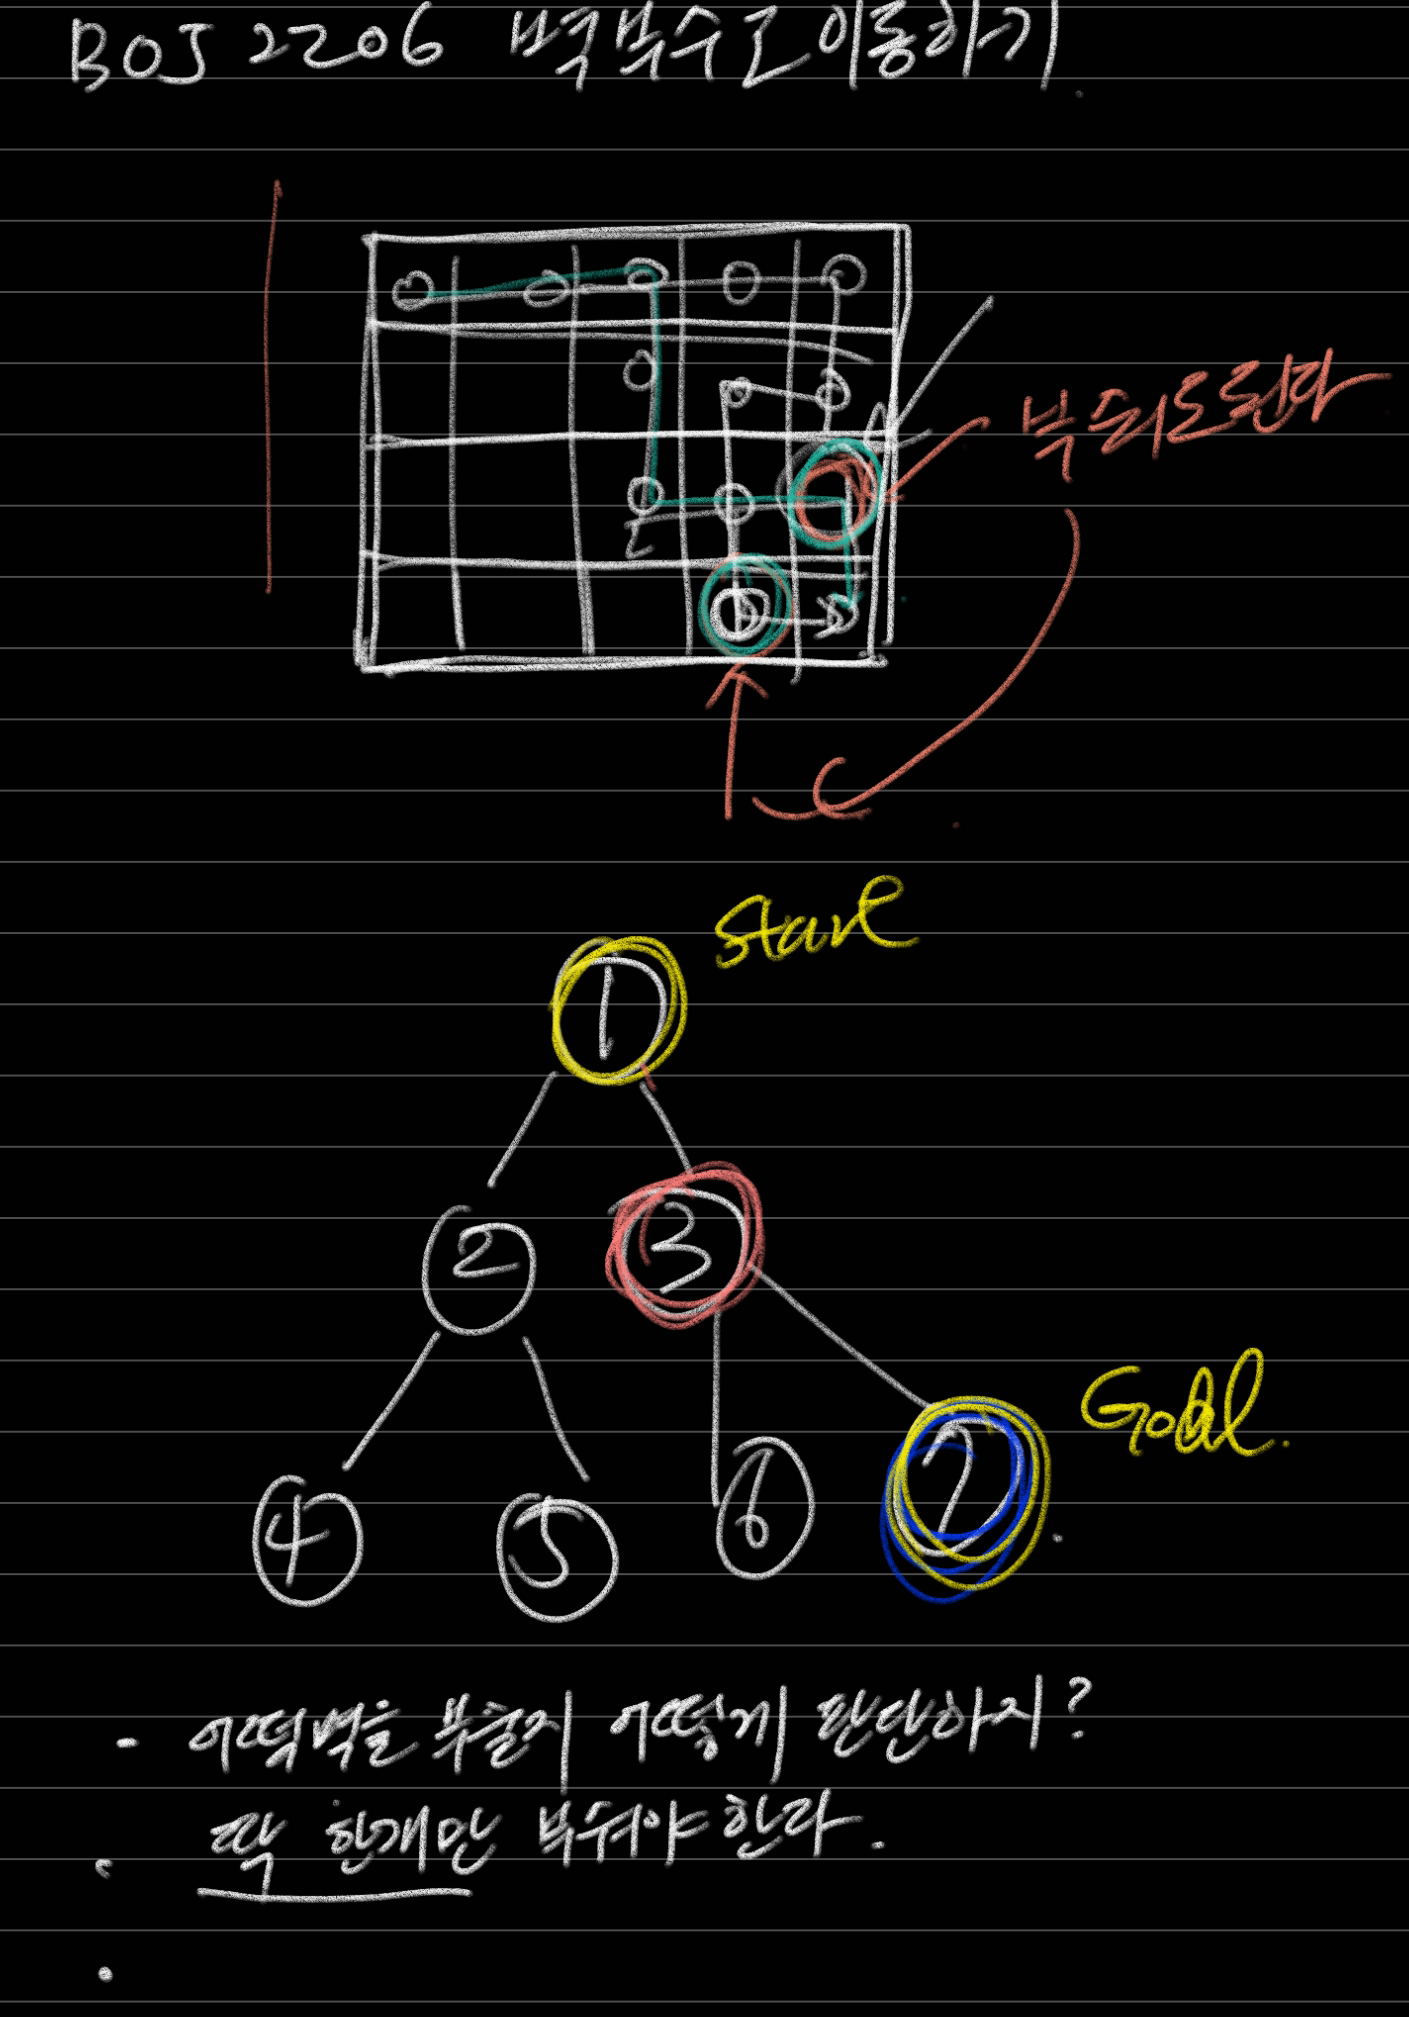 BOJ 2206 벽 부수고 이동하기
부숴도된다
Start
1
2 3
Goal.
4 5 6 7
· 어떡벽을 부술지 어떻게 판단하지?
· 딱 한개만 부숴야 한다.
·